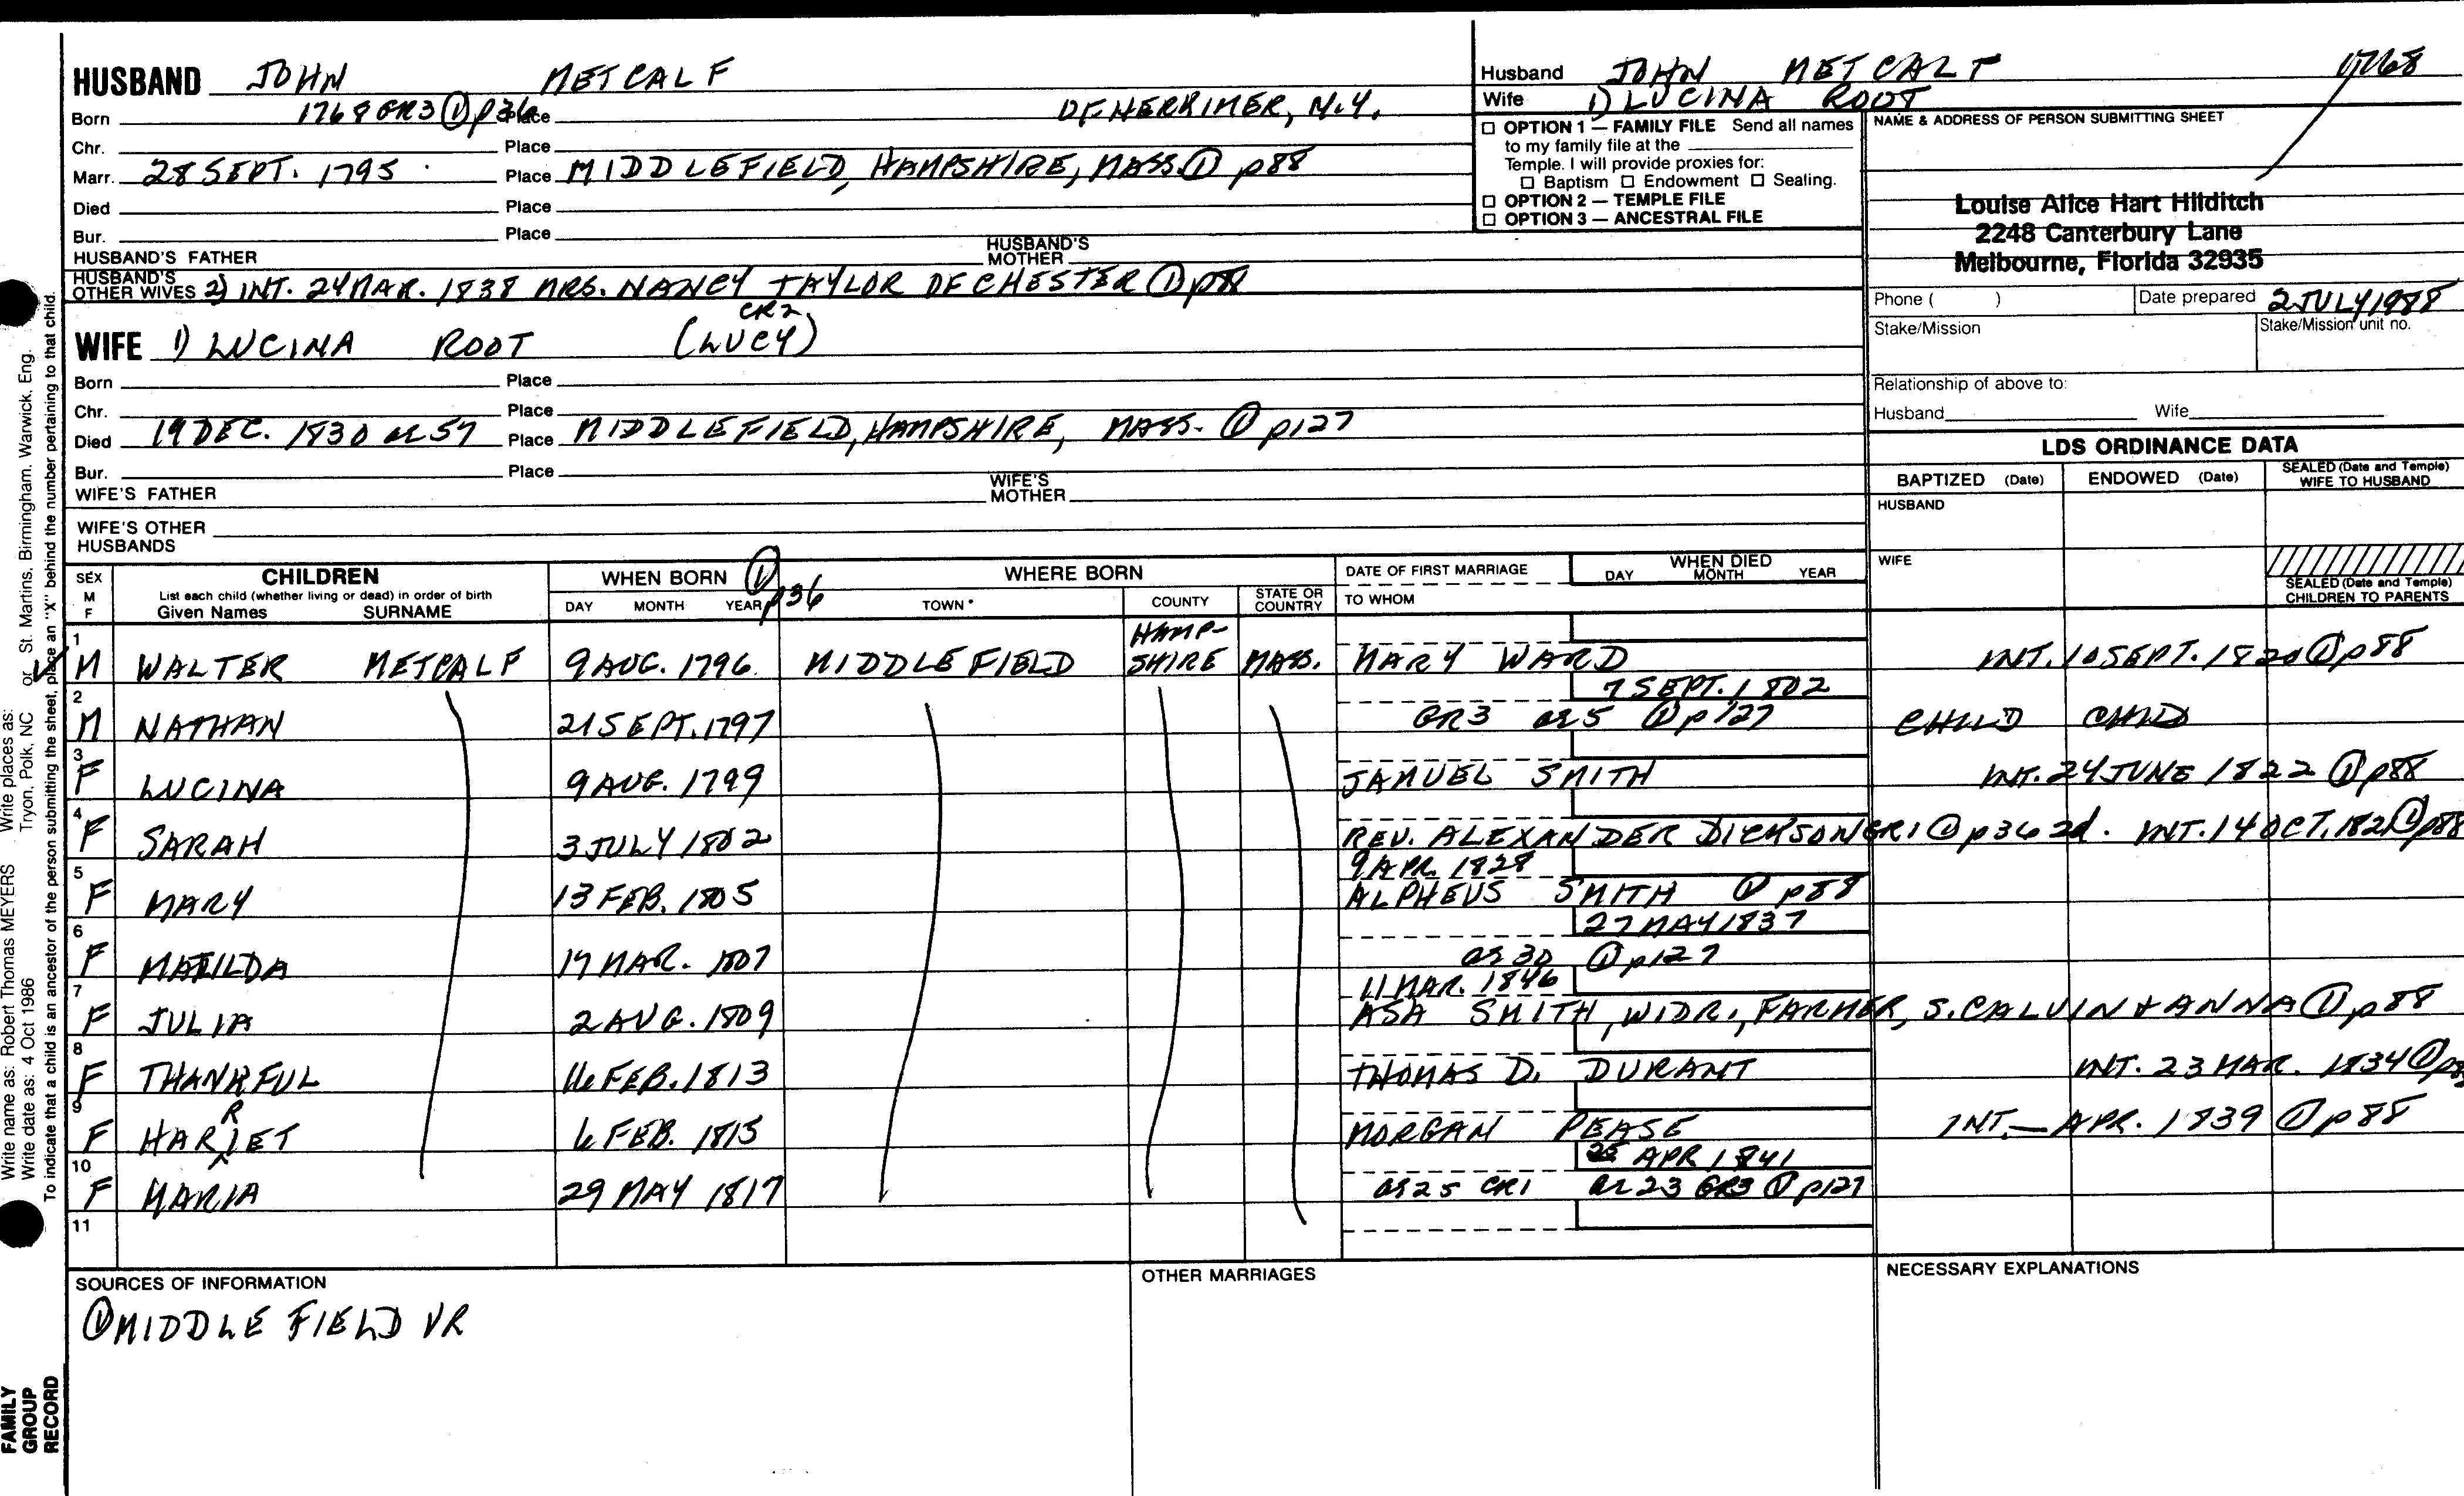 HUSBAND JOHN METCALF
Born 1768 GR3 ① p36 Place OF HERKIMER, N.Y.
Chr. Place
Marr. 28 SEPT. 1795 Place MIDDLEFIELD, HAMPSHIRE, MASS. ① p88
Died Place
Bur. Place
HUSBAND'S FATHER HUSBAND'S MOTHER
HUSBAND'S OTHER WIVES 2) INT. 24 MAR. 1838 MRS. NANCY TAYLOR OF CHESTER ① p88
CR2
WIFE 1) LUCINA ROOT (LUCY)
Born Place
Chr. Place
Died 19 DEC. 1830 ae 57 Place MIDDLEFIELD, HAMPSHIRE, MASS. ① p127
Bur. Place
WIFE'S FATHER WIFE'S MOTHER
WIFE'S OTHER HUSBANDS
Husband JOHN METCALF 1768
Wife 1) LUCINA ROOT
☐ OPTION 1 — FAMILY FILE Send all names
to my family file at the
Temple. I will provide proxies for:
☐ Baptism ☐ Endowment ☐ Sealing.
☐ OPTION 2 — TEMPLE FILE
☐ OPTION 3 — ANCESTRAL FILE
NAME & ADDRESS OF PERSON SUBMITTING SHEET
Louise Alice Hart Hilditch
2248 Canterbury Lane
Melbourne, Florida 32935
Phone ( ) Date prepared 2 JULY 1988
Stake/Mission Stake/Mission unit no.
Relationship of above to:
Husband Wife
LDS ORDINANCE DATA
BAPTIZED (Date) ENDOWED (Date) SEALED (Date and Temple) WIFE TO HUSBAND
HUSBAND
WIFE
SEALED (Date and Temple) CHILDREN TO PARENTS
SEX M F CHILDREN List each child (whether living or dead) in order of birth Given Names SURNAME
WHEN BORN ① p36 DAY MONTH YEAR
WHERE BORN TOWN COUNTY STATE OR COUNTRY
DATE OF FIRST MARRIAGE TO WHOM
WHEN DIED DAY MONTH YEAR
1 M WALTER METCALF 9 AUG. 1796 MIDDLEFIELD HAMP-SHIRE MASS. MARY WARD INT. 10 SEPT. 1820 ① p88
2 7 SEPT. 1802
M NATHAN 21 SEPT. 1797 GR3 ae 5 ① p127 CHILD CHILD
3 F LUCINA 9 AUG. 1799 SAMUEL SMITH INT. 24 JUNE 1822 ① p88
4 F SARAH 3 JULY 1802 REV. ALEXANDER DICKSON GR1 ① p36 2d. INT. 14 OCT. 182 ① p88
5 9 APR. 1828
F MARY 13 FEB. 1805 ALPHEUS SMITH ① p88
6 27 MAY 1837
F MATILDA 17 MAR. 1807 ae 30 ① p127
7 11 MAR. 1846
F JULIA 2 AUG. 1809 ASA SMITH, WIDR., FARMER, S. CALVIN & ANNA ① p88
8 F THANKFUL 16 FEB. 1813 THOMAS D. DURANT INT. 23 MAR. 1834 ①
9 F HARRIET 6 FEB. 1815 MORGAN PEASE INT. — APR. 1839 ① p88
10 APR 1841
F MARIA 29 MAY 1817 ae 25 CR1 ae 23 GR3 ① p127
11
SOURCES OF INFORMATION
① MIDDLEFIELD VR
OTHER MARRIAGES
NECESSARY EXPLANATIONS
Write name as: Robert Thomas MEYERS Write places as:
Write date as: 4 Oct 1986 Tryon, Polk, NC or St. Martins, Birmingham, Warwick, Eng.
To indicate that a child is an ancestor of the person submitting the sheet, place an "X" behind the number pertaining to that child.
FAMILY
GROUP
RECORD